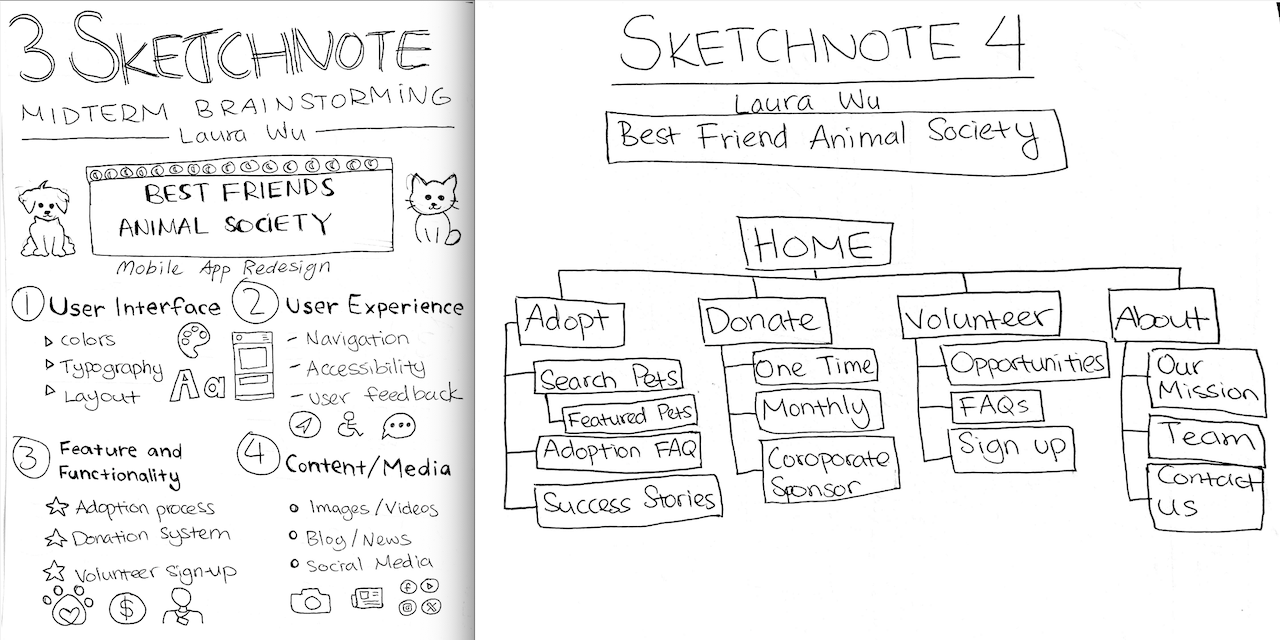 3 SKETCHNOTE
MIDTERM BRAINSTORMING
Laura Wu
BEST FRIENDS
ANIMAL SOCIETY
Mobile App Redesign
1 User Interface
colors
Typography
Layout
Aa
2 User Experience
- Navigation
- Accessibility
- user feedback
3 Feature and
Functionality
Adoption process
Donation System
Volunteer Sign-up
$
4 Content/Media
Images/Videos
Blog/News
Social Media
SKETCHNOTE 4
Laura Wu
Best Friend Animal Society
HOME
Adopt
Search Pets
Featured Pets
Adoption FAQ
Success Stories
Donate
One Time
Monthly
Coroporate
Sponsor
Volunteer
Opportunities
FAQs
Sign up
About
Our
Mission
Team
Contact
us